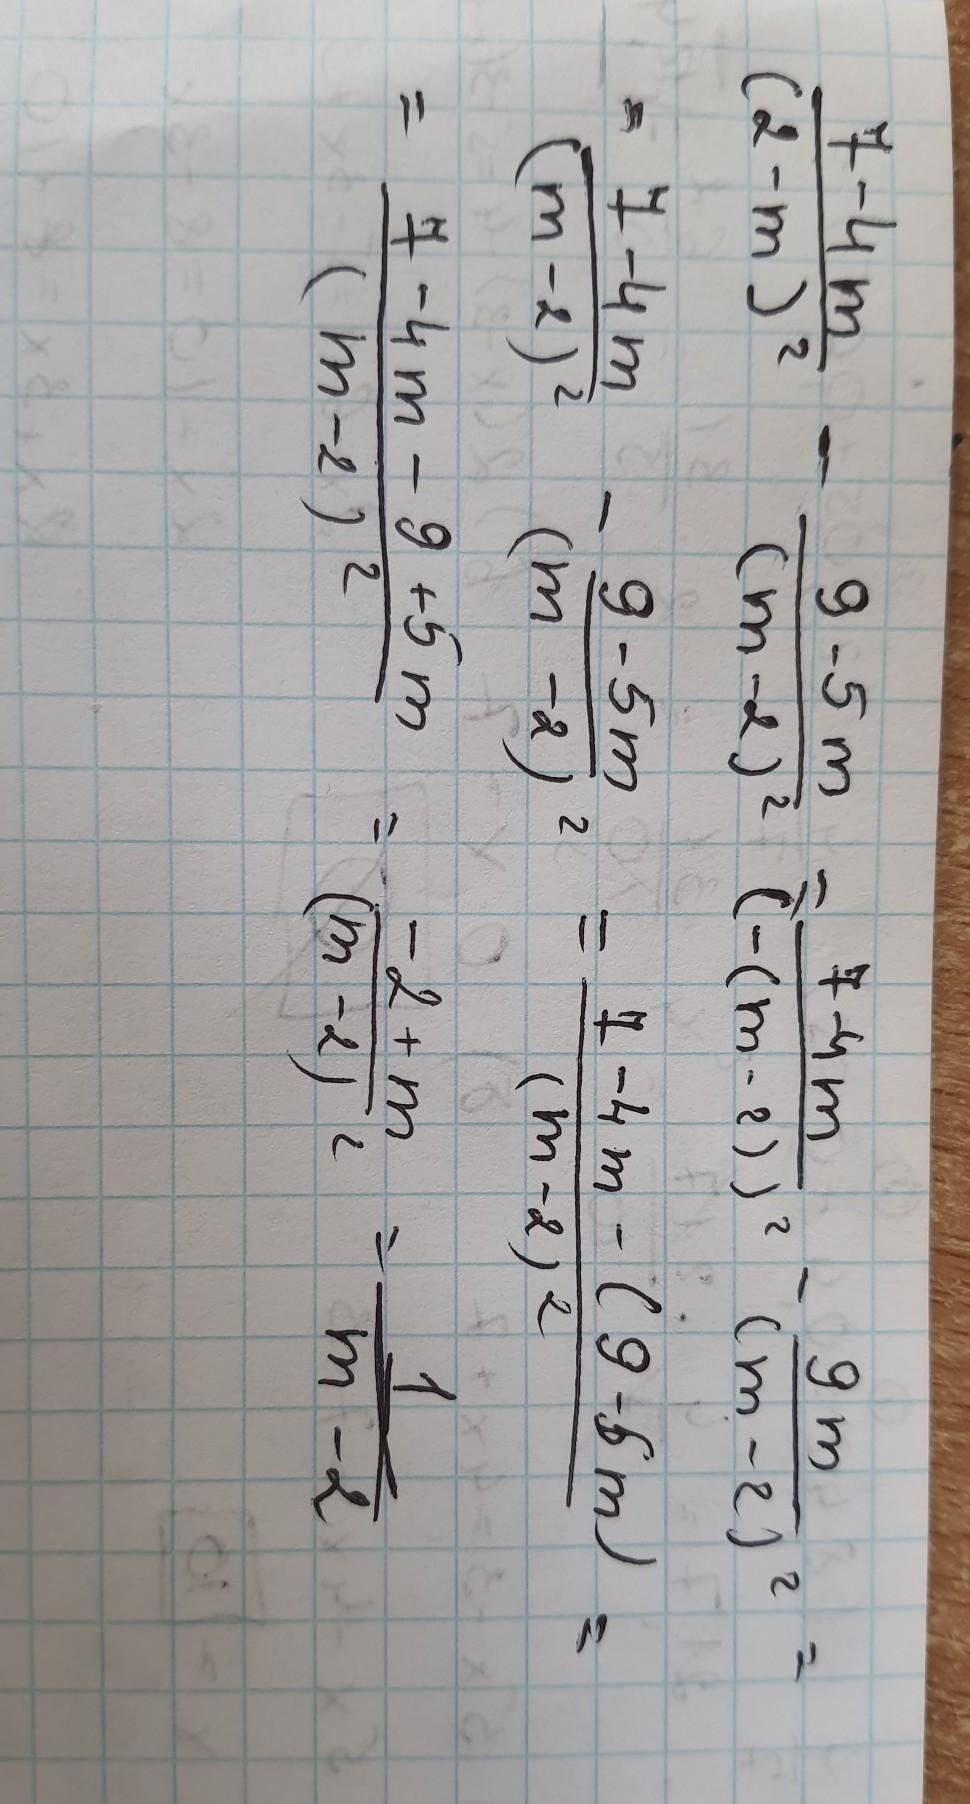 (7-4m)/(2-m)² - (9-5m)/(m-2)² = (7-4m)/(-(m-2))² - (9m)/(m-2)² =
= (7-4m)/(m-2)² - (9-5m)/(m-2)² = (7-4m-(9-5m))/(m-2)² =
= (7-4m-9+5m)/(m-2)² = (-2+m)/(m-2)² = 1/(m-2)